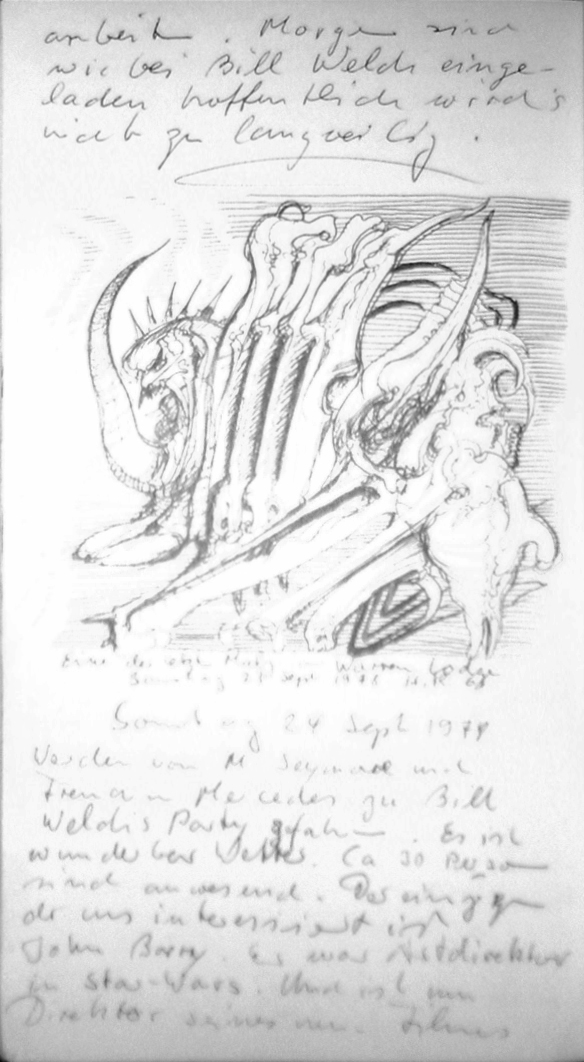 arbeit. Morgen sind
wir bei Bill Welch einge-
laden hoffentlich wird's
nicht zu langweilig.
Sonntag 24 Sept 1978
Sonntag 24 Sept 1978
Werden von M Seymour und
Freundin Mercedes zu Bill
Welch's Party gefahren. Es ist
wunderbar Wetter. Ca 30 Person
sind anwesend. Der einzige
der uns interessiert ist
John Barry. Er war Artdirektor
in Star-Wars. Und ist nun
Direktor seines neuen Filmes